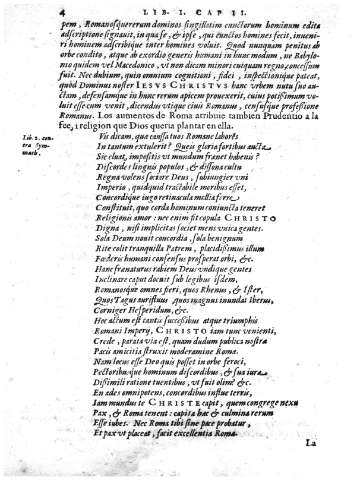 4 LIB. I. CAP. II.
pem, Romanosque rerum dominos singillatim cunctorum hominum edita
adscriptione signauit, in qua se, & ipse, qui cunctos homines fecit, inueni-
ri hominem adscribique inter homines voluit. Quod nunquam penitus ab
orbe condito, atque ab exordio generis humani in hunc modum, ne Babylo-
nio quidem vel Macedonico, vt non dicam minori cuiquam regno, concessum
fuit. Nec dubium, quin omnium cognitioni, fidei, inspectionique pateat,
quòd Dominus noster IESVS CHRISTVS hanc vrbem nutu suo au-
ctam, defensamque in hunc rerum apicem prouexerit, cuius potissimum vo-
luit esse cum venit, dicendus vtique ciuis Romanus, censusque professione
Romanus. Los aumentos de Roma atribuie tambien Prudentio a la
fee, i religion que Dios queria plantar en ella.
Lib. 2. con-
tra Sym-
machum.
Vis dicam, quæ causa tuos Romane labores
In tantum extulerit? Queis gloria fortibus aucta
Sic eluat, impositis vt mundum frænet habenis?
Discordes linguis populos, & dissona cultu
Regna volens sociare Deus, subiungier vni
Imperio, quidquid tractabile moribus esset,
Concordique iugo retinacula mollia ferre
Constituit, quo corda hominum coniuncta teneret
Religionis amor: nec enim fit copula CHRISTO
Digna, nisi implicitas societ mens vnica gentes.
Sola Deum nouit concordia, sola benignum
Rite colit tranquilla Patrem, placidissimus illum
Fœderis humani consensus prosperat orbi, &c.
Hanc frænaturus rabiem Deus vndique gentes
Inclinare caput docuit sub legibus ijsdem,
Romanosque omnes fieri, quos Rhenus, & Ister,
Quos Tagus aurifluus quos magnus inundat Iberus,
Corniger Hesperidum, &c.
Hoc actum est tantis successibus atque triumphis
Romani Imperij, CHRISTO iam tunc venienti,
Crede, parata via est, quam dudum publica nostræ
Pacis amicitia struxit moderamine Romæ.
Nam locus esse Deo quis posset in orbe feroci,
Pectoribusque hominum discordibus, & sua iura
Dissimili ratione tuentibus, vt fuit olim? &c.
En ades omnipotens, concordibus influe terris,
Iam mundus te CHRISTE capit, quem congrege nexu
Pax, & Roma tenent: capita hæc & culmina rerum
Esse iubes. Nec Roma tibi sine pace probatur,
Et pax vt placeat, facit excellentia Romæ.
La